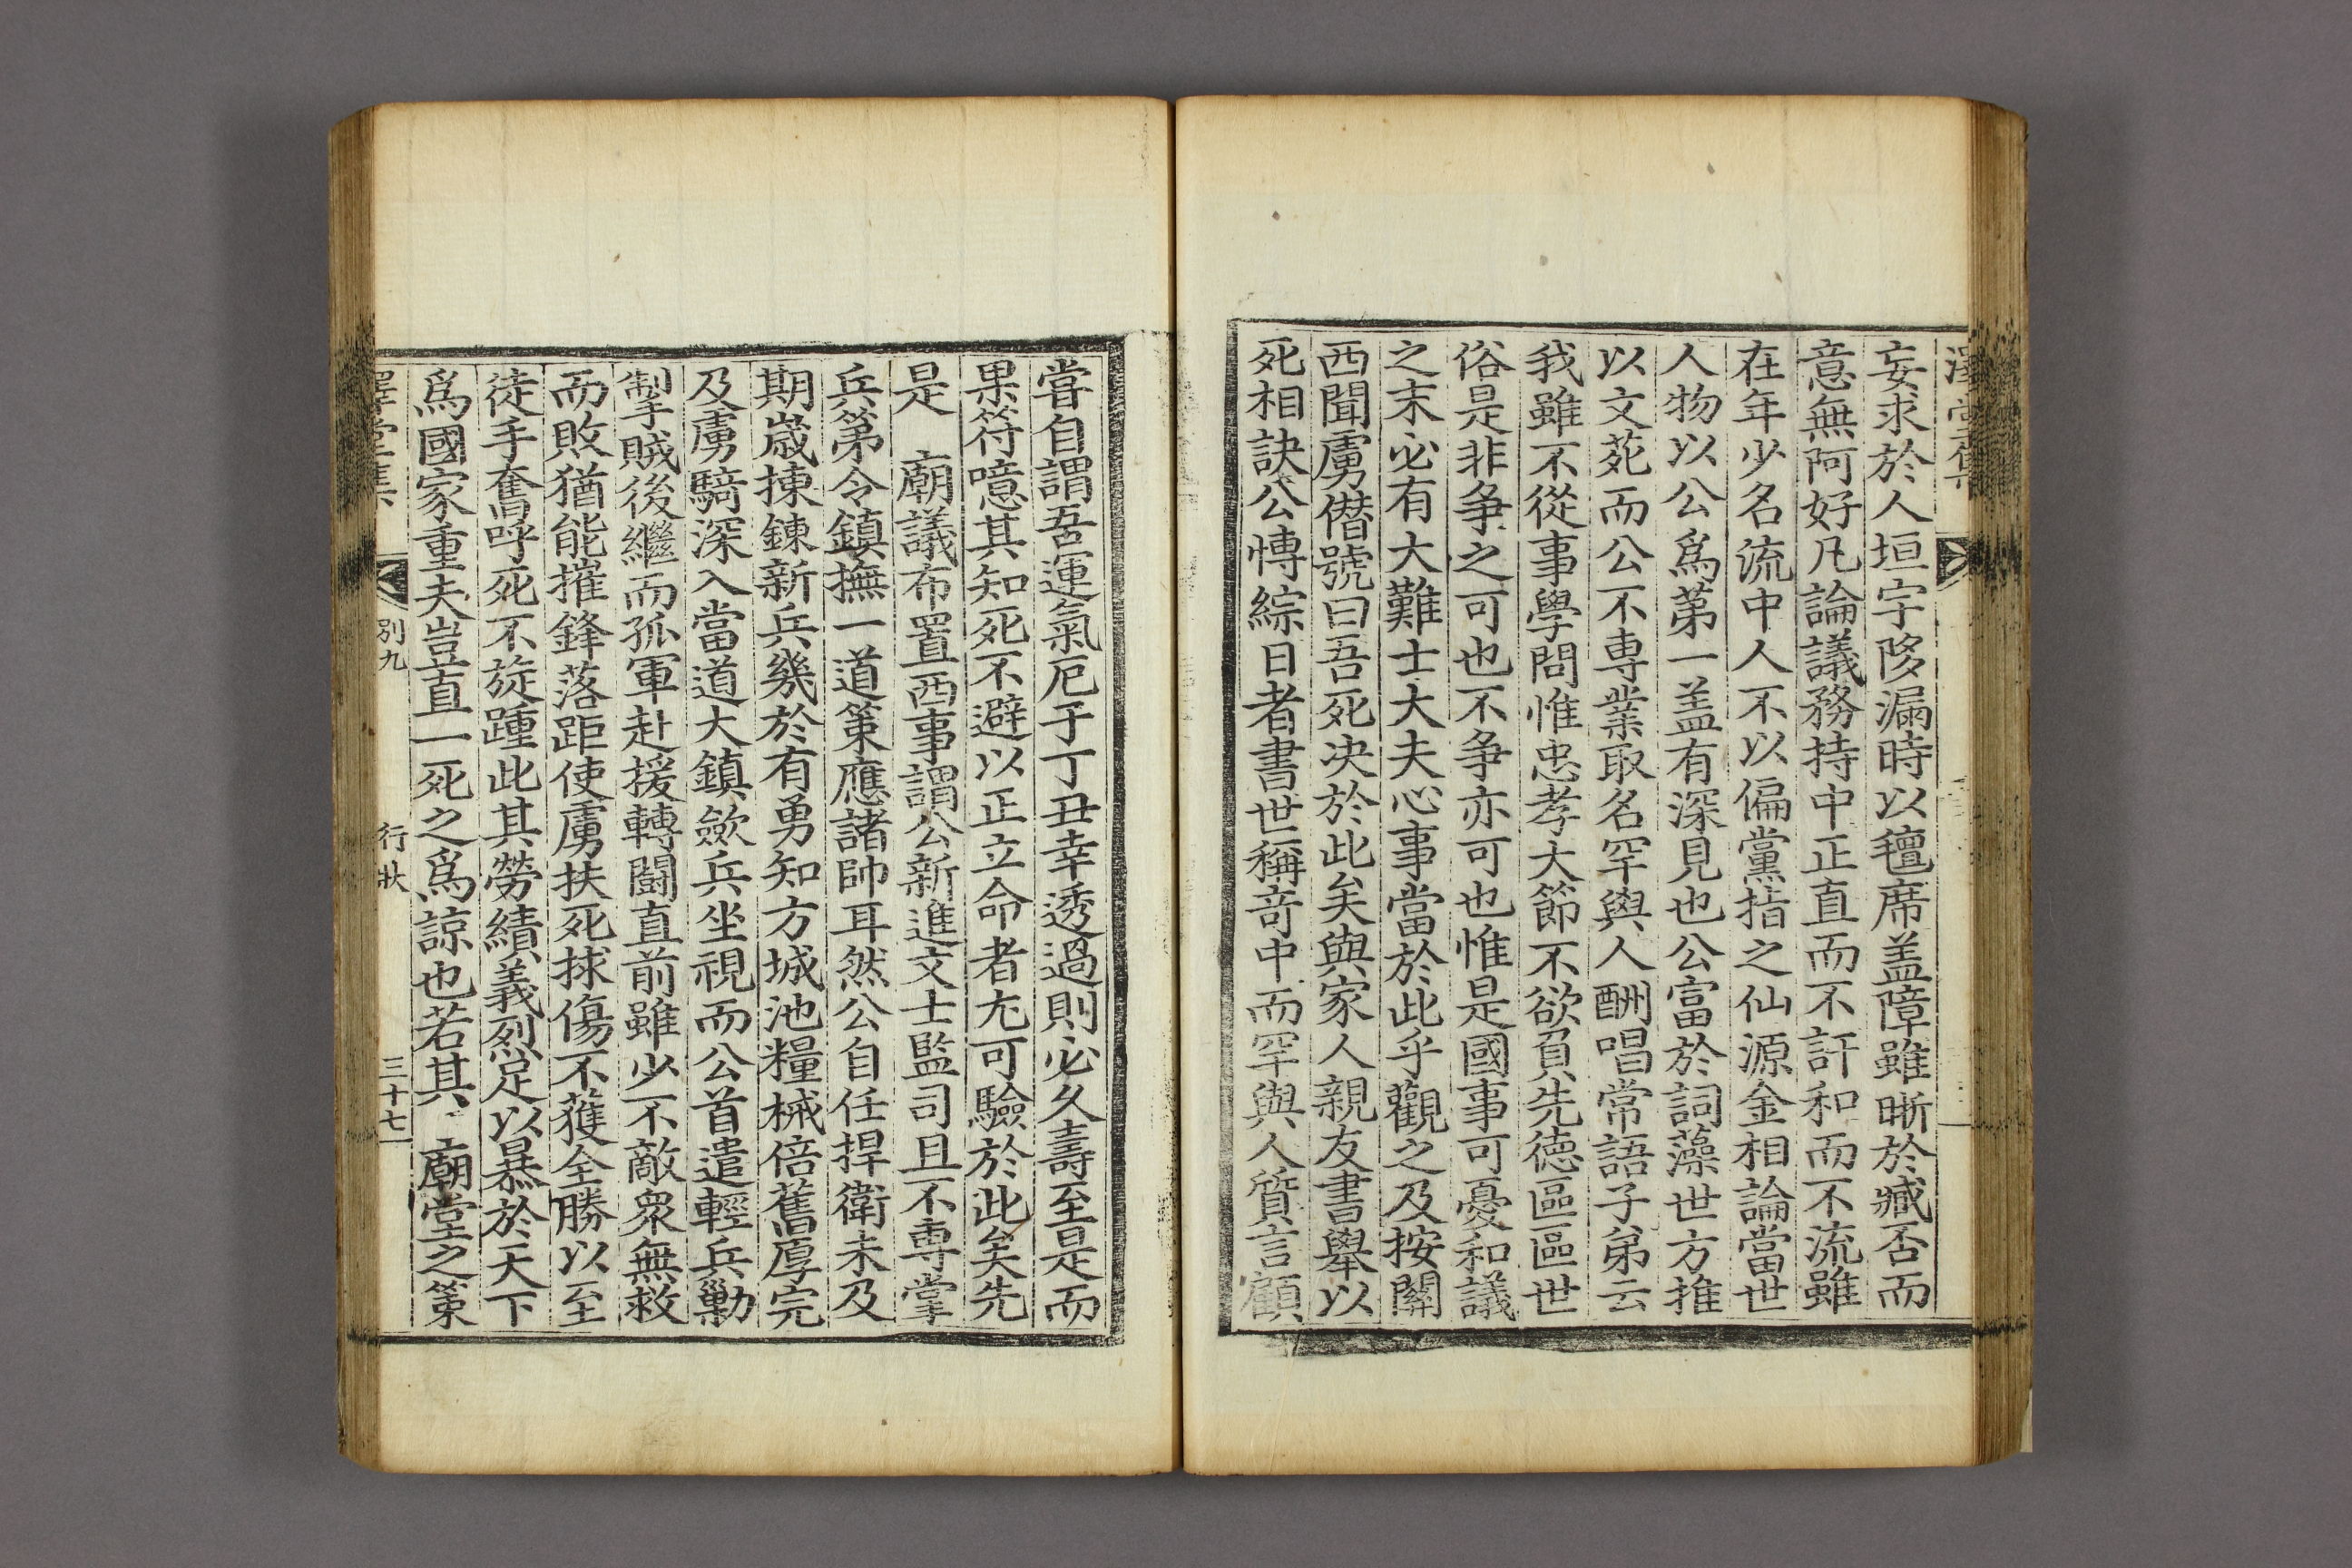 妄求於人垣宇陊漏時以氊席盖障雖晣於臧否而
意無阿好凡論議務持中正直而不訐和而不流雖
在年少名流中人不以偏黨指之仙源金相論當世
人物以公爲第一盖有深見也公富於詞藻世方推
以文苑而公不專業取名罕與人酬唱常語子弟云
我雖不從事學問惟忠孝大節不欲負先德區區世
俗是非争之可也不争亦可也惟是國事可憂和議
之末必有大難士大夫心事當於此乎觀之及按關
西聞虜僣號曰吾死决於此矣與家人親友書舉以
死相訣公愽綜日者書世稱竒中而罕與人質言顧
嘗自謂吾運氣厄于丁丑幸透過則必久壽至是而
果符噫其知死不避以正立命者尤可驗於此矣先
是 廟議布置西事謂公新進文士監司且不專掌
兵第令鎮撫一道策應諸帥耳然公自任捍衛未及
期歲揀鍊新兵幾於有勇知方城池糧械倍舊厚完
及虜騎深入當道大鎮歛兵坐視而公首遣輕兵勦
掣賊後繼而孤軍赴援轉闘直前雖少不敵衆無救
而敗猶能摧鋒落距使虜扶死捄傷不獲全勝以至
徒手奮呼死不旋踵此其勞績義烈足以暴於天下
爲國家重夫豈直一死之爲諒也若其 廟堂之策
別九
行狀
三十七